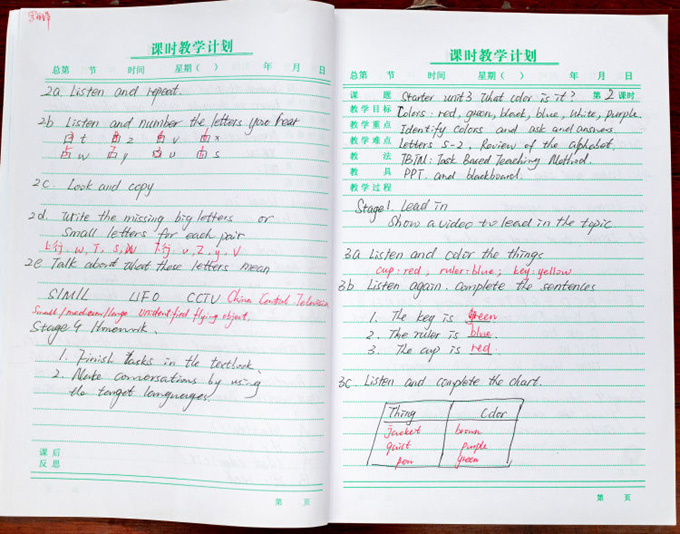 课时教学计划
总第 节 时间 星期( ) 年 月 日
2a. Listen and repeat.
2b Listen and number the letters you hear
t z v x
w y u s
2c Look and copy
2d. Write the missing big letters or
small letters for each pair
上行, W, T, S, W 下行, v, Z, y, V
2e Talk about what these letters mean
S/M/L UFO CCTV China Central Television
Small/medium/large Unidentified flying object.
Stage 4 Homework.
1. Finish tasks in the textbook.
2. Make conversations by using
the target languages
课后
反思
第 页
课时教学计划
总第 节 时间 星期( ) 年 月 日
课 题 Starter unit 3 What color is it? 第 2 课时
教学目标 Colors: red, green, black, blue, white, purple.
教学重点 Identify colors and ask and answer
教学难点 Letters S-Z, Review of the alphabet.
教 法 TBTM: Task Based Teaching Method.
教 具 PPT. and blackboard.
教学过程
Stage 1. Lead in
Show a video to lead in the topic
3a Listen and color the things
cup: red; ruler: blue; key: yellow
3b Listen again. complete the sentences
1. The key is green
2. The ruler is blue.
3. The cup is red.
3c. Listen and complete the chart.
Thing Color
jacket brown
quilt purple
pen green
第 页